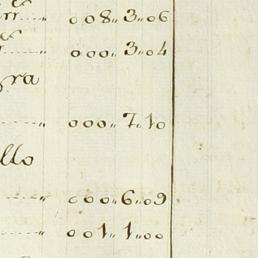 008"3"06
000"3"04
gra
000"7"10
llo
000"6"09
001"1"00